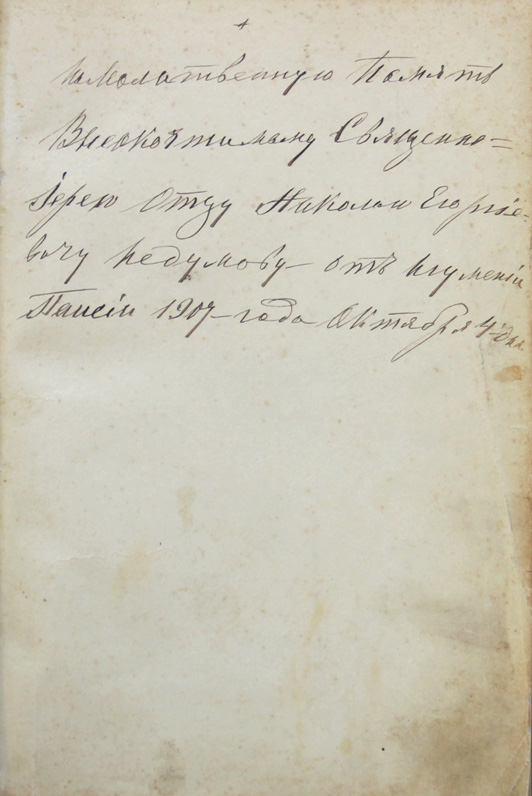 +
Намолитвенную Память
Высокочтимому Священно=
Іерею Отцу Николаю Егоріе-
вичу Недумову – отъ Игуменіи
Паисіи 1907 – года Октября 4 – дня